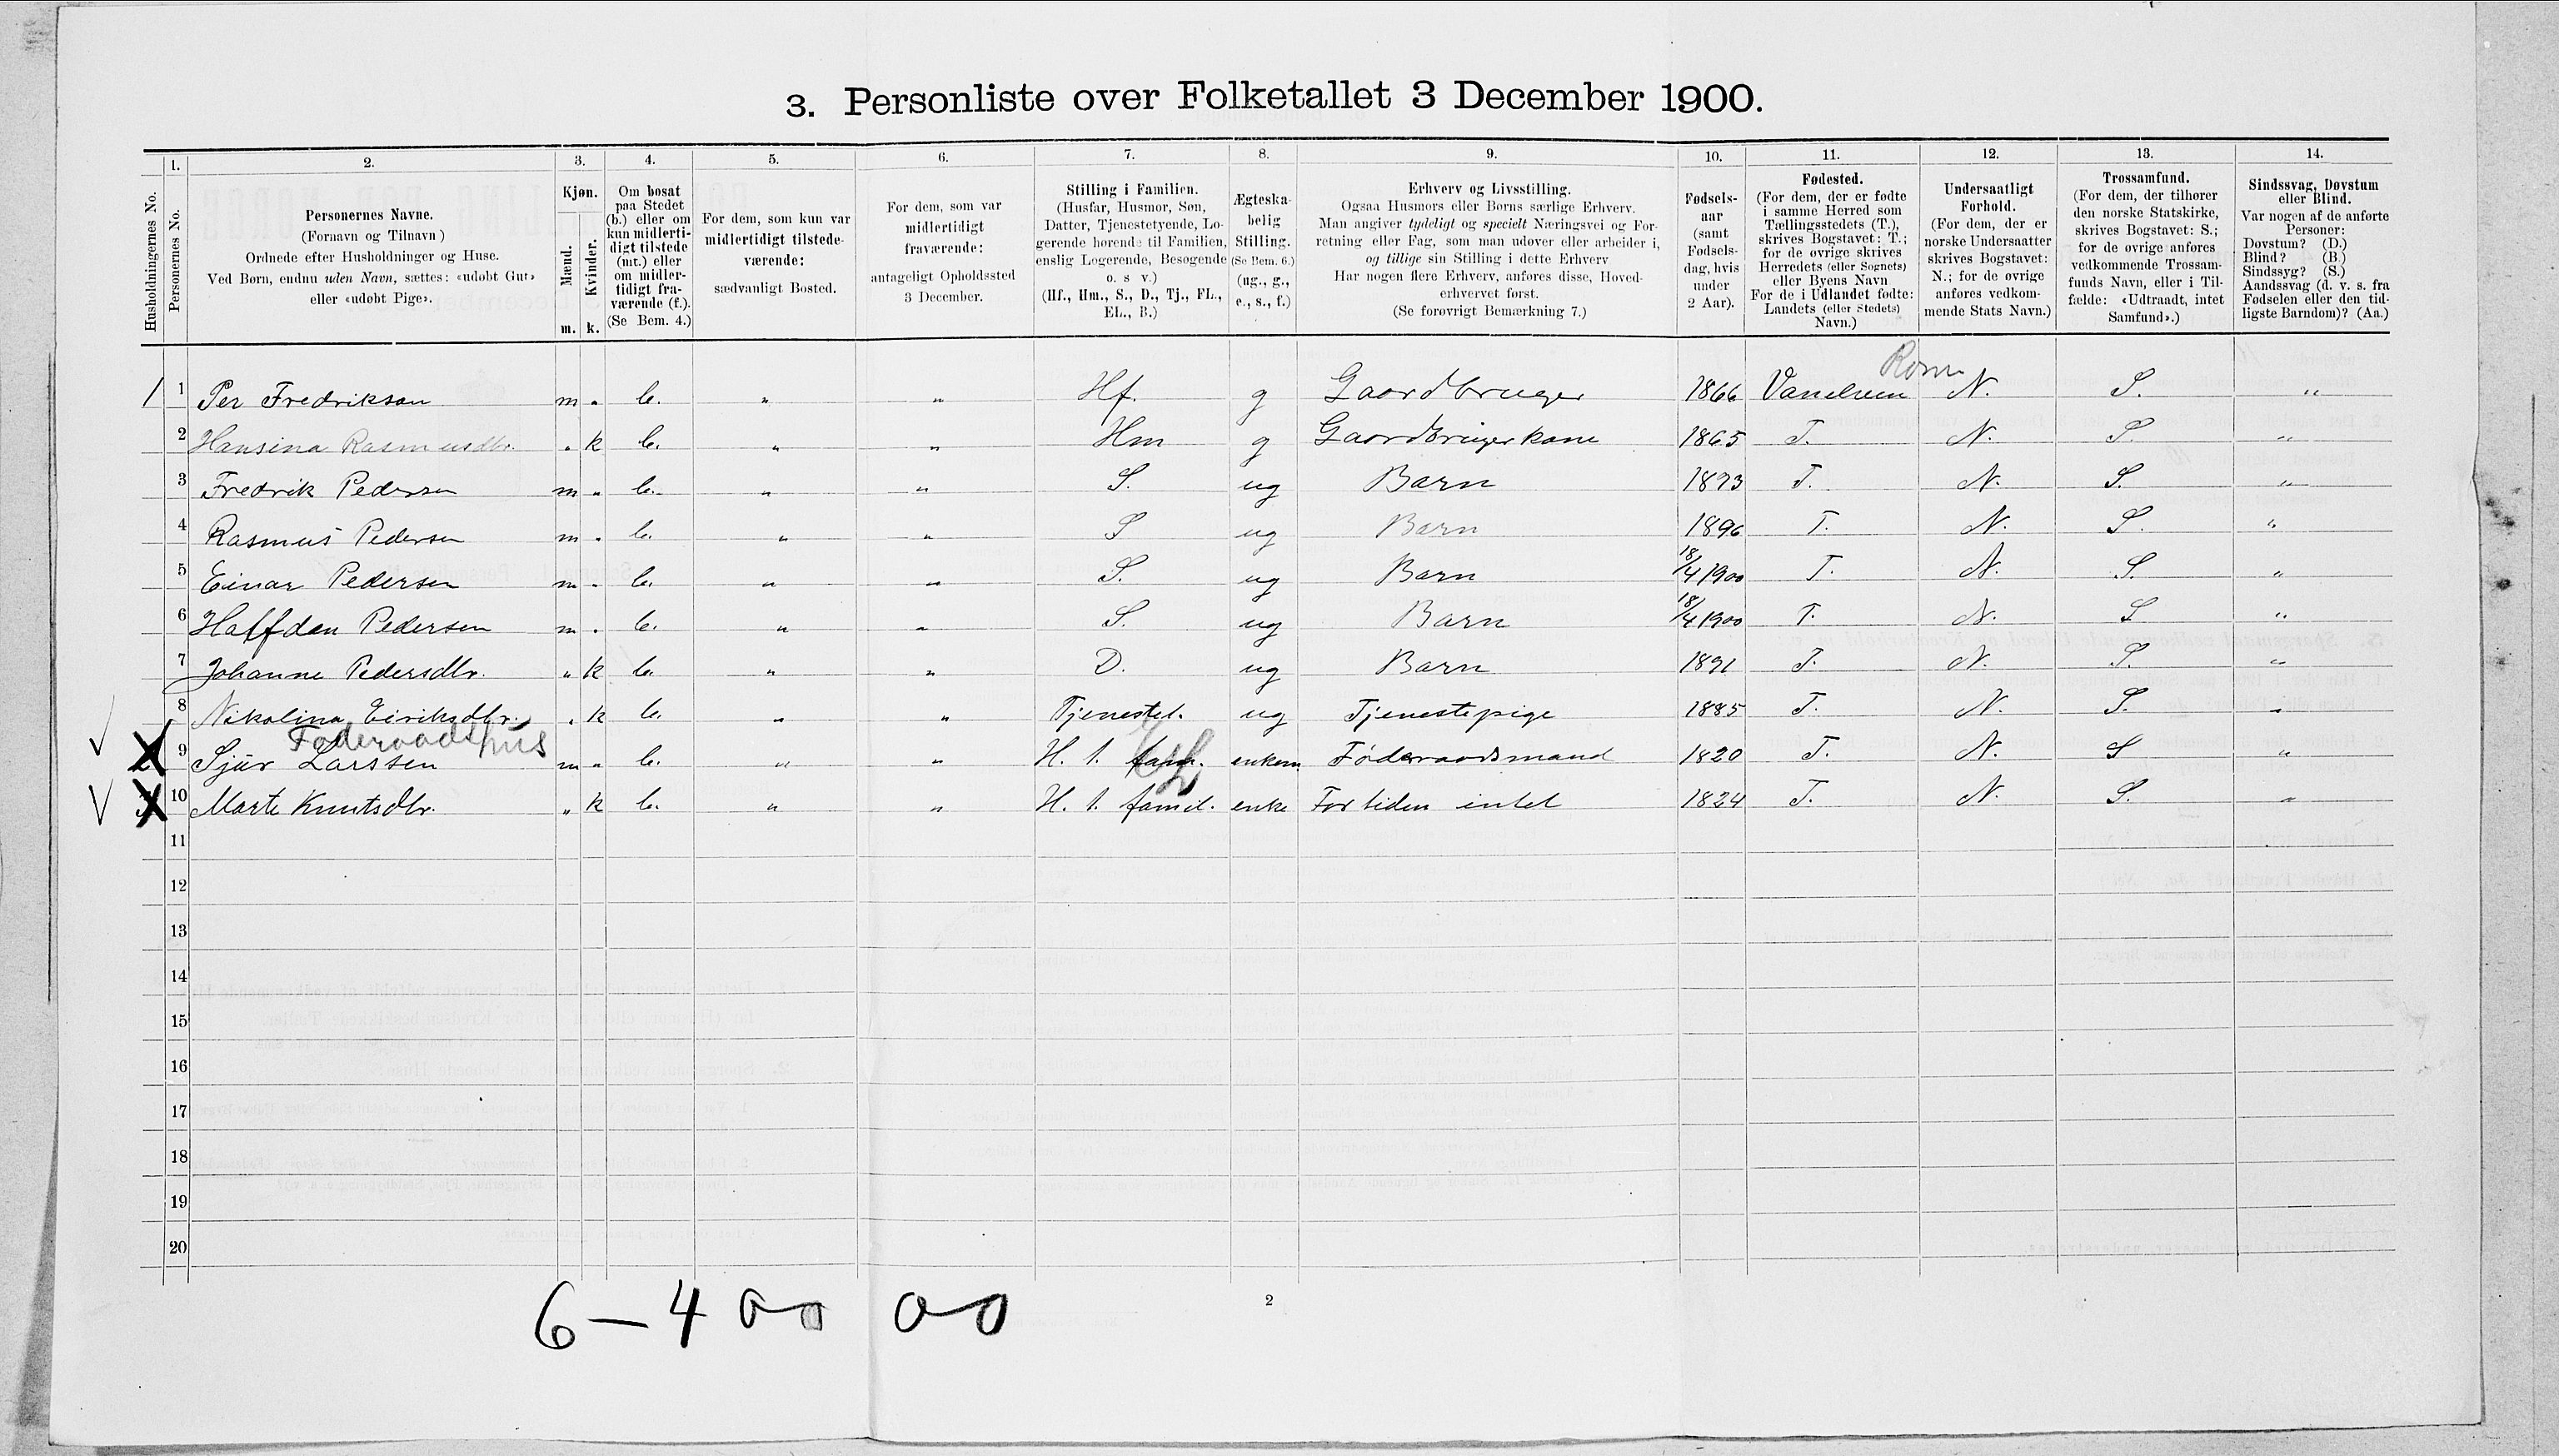 3. Personliste over Folketallet 3 December 1900.
Husholdningernes No.
1. Personernes No.
2. Personernes Navne.
(Fornavn og Tilnavn)
Ordnede efter Husholdninger og Huse.
Ved Børn, endnu uden Navn, sættes: «udøbt Gut»
eller «udøbt Pige».
3. Kjøn.
Mænd. Kvinder.
m. k.
4. Om bosat
paa Stedet
(b.) eller om
kun midlerti-
digt tilstede
(mt.) eller
om midler-
tidigt fra-
værende (f.).
(Se Bem. 4.)
5. For dem, som kun var
midlertidigt tilstede-
værende:
sædvanligt Bosted.
6. For dem, som var
midlertidigt
fraværende:
antageligt Opholdssted
3 December.
7. Stilling i Familien.
(Husfar, Husmor, Søn,
Datter, Tjenestetyende, Lo-
gerende hørende til Familien,
enslig Logerende, Besøgende
o. s v.)
(Hf., Hm., S., D., Tj., FL.,
EL., B.)
8. Ægteska-
belig
Stilling.
(Se Bem. 6.)
(ug., g.,
e., s., f.)
9. Erhverv og Livsstilling.
Ogsaa Husmors eller Børns særlige Erhverv.
Man angiver tydeligt og specielt Næringsvei og For-
retning eller Fag, som man udøver eller arbeider i,
og tillige sin Stilling i dette Erhverv
Har nogen flere Erhverv, anføres disse, Hoved-
erhvervet først.
(Se forøvrigt Bemærkning 7.)
10. Fødsels-
aar
(samt
Fødsels-
dag, hvis
under
2 Aar).
11. Fødested.
(For dem, der er fødte
i samme Herred som
Tællingsstedets (T.),
skrives Bogstavet: T.;
for de øvrige skrives
Herredets (eller Sognets)
eller Byens Navn
For de i Udlandet fødte:
Landets (eller Stedets)
Navn.)
12. Undersaatligt
Forhold.
(For dem, der er
norske Undersaatter
skrives Bogstavet:
N.; for de øvrige
anføres vedkom-
mende Stats Navn.)
13. Trossamfund.
(For dem, der tilhører
den norske Statskirke,
skrives Bogstavet: S.;
for de øvrige anføres
vedkommende Trossam-
funds Navn, eller i Til-
fælde: «Udtraadt, intet
Samfund».)
14. Sindssvag, Døvstum
eller Blind.
Var nogen af de anførte
Personer:
Døvstum? (D.)
Blind? (B.)
Sindssyg? (S.)
Aandssvag (d. v. s. fra
Fødselen eller den tid-
ligste Barndom)? (Aa.)
Rom
1 1 Per Fredrikson m " b. " " Hf. g Gaardbruger 1866 N. S. "
2 Hansina Rasmusdtr. " k b. " " Hm g Gaardbrugerkone 1865 T. N. S. "
3 Fredrik Pedersen m " b. " " S. ug Barn 1893 T. N. S. "
4 Rasmus Pedersen m " b. " " S ug Barn 1896 T. N. S. "
5 Einar Pedersen m " b. " " S. ug Barn 18/4 1900 T. N. S. "
6 Halfdan Pedersen m " b. " " S. ug Barn 18/4 1900 T. N. S "
7 Johanne Pedersdtr. " k b. " " D. ug Barn 1891 T. N. S. "
8 Nikolina Eiriksdtr. " k b. " " Tjenestet. ug Tjenestepige 1885 T. N. S. "
Føderaadshus
9 Sjur Larssen m " b. " " H. t. fam. enkem. Føderaadsmand 1820 T. N. S "
10 Marte Knutsdtr. " k b. " " H. t. famil. enke For tiden intet 1824 T. N. S. "
11
12
13
14
15
16
17
18
19
20
6 — 4 0-0 0-0
2